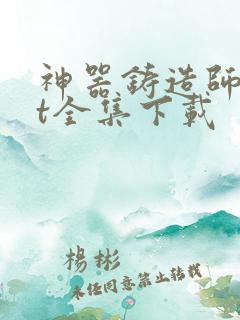 神器鑄造師
t全集下載
楊彬
未經同意禁止轉載